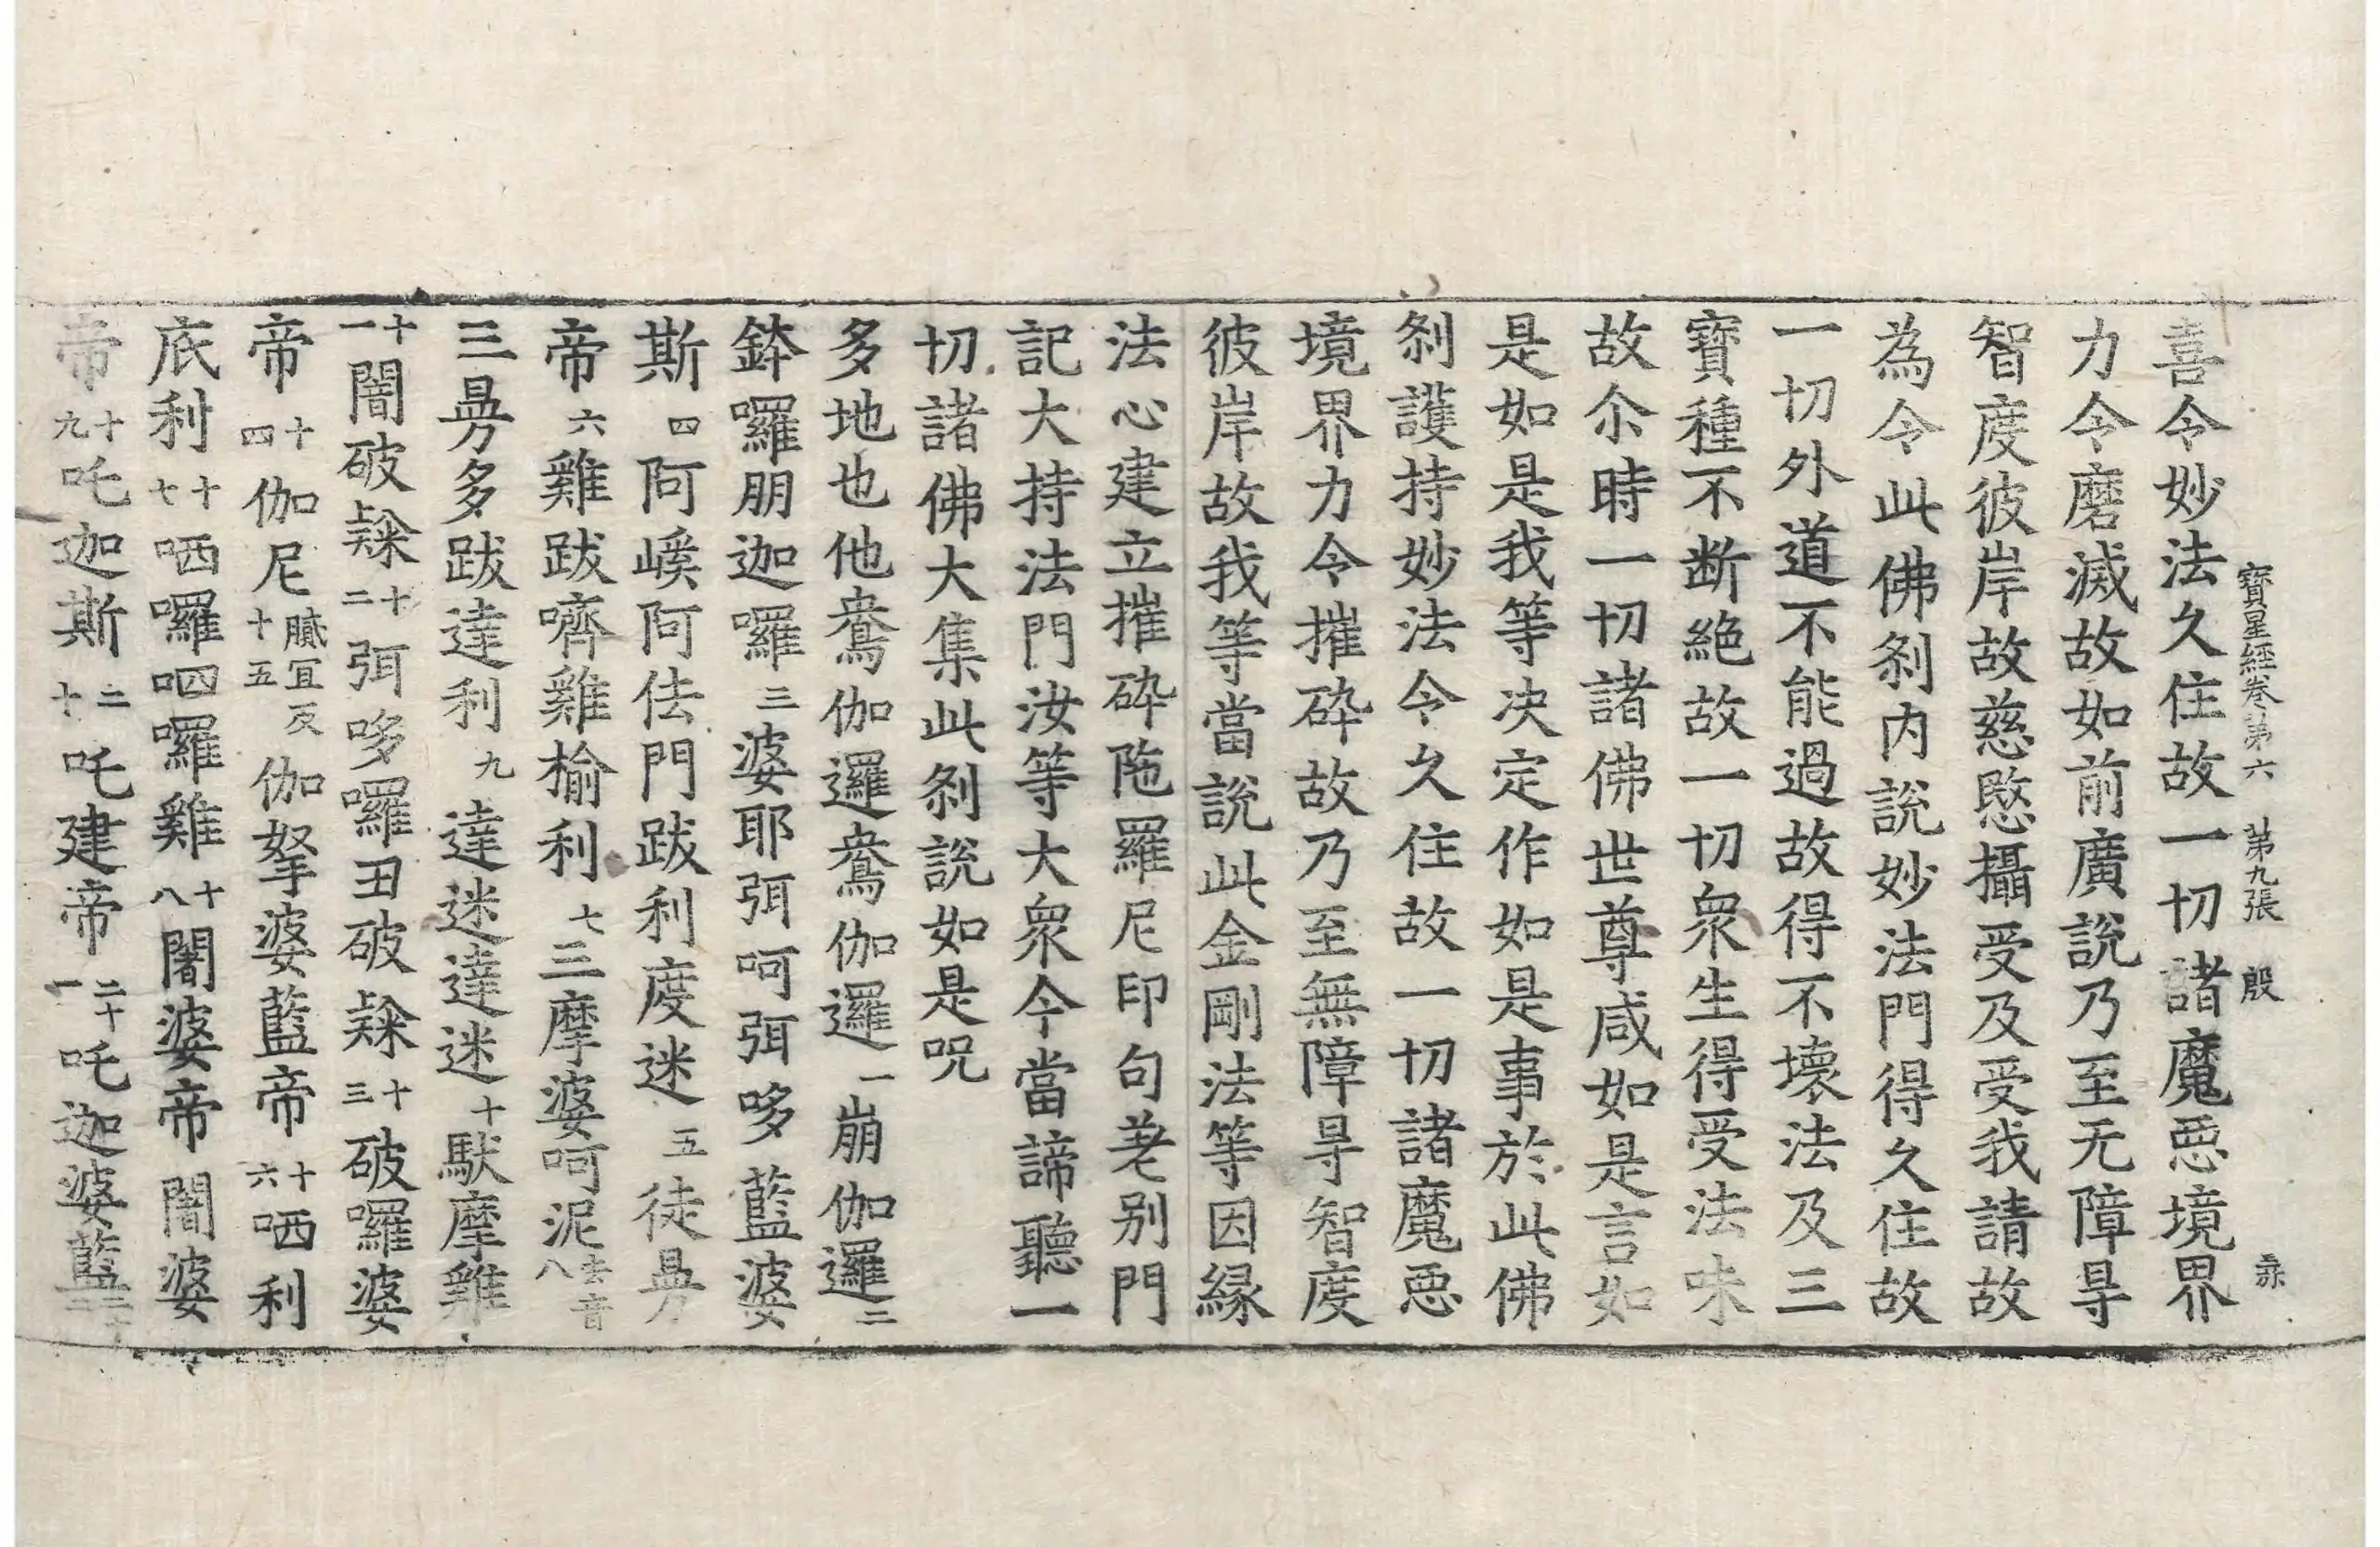 寶星經卷第六　第九張　殷
喜令妙法久住故一切諸魔惡境界
力令磨滅故如前廣說乃至无障㝵
智度彼岸故慈愍攝受及受我請故
為令此佛剎内說妙法門得久住故
一切外道不能過故得不壞法及三
寶種不断絕故一切衆生得受法味
故尒時一切諸佛世尊咸如是言如
是如是我等决定作如是事於此佛
剎護持妙法令久住故一切諸魔惡
境界力令摧碎故乃至無障㝵智度
彼岸故我等當說此金剛法等因縁
法心建立摧碎陁羅尼印句差别門
記大持法門汝等大衆今當諦聽一
切諸佛大集此剎說如是呪
多地也他鴦伽邏鴦伽邏一崩伽邏二
鉢囉朋迦囉三婆耶弭呵弭哆藍婆
斯四阿㠋阿佉門跋利度迷五徒㝵
帝六雞跋嚌雞榆利七三摩婆呵泥去音八
三㝵多跋達利九達迷達迷十馱摩雞
十一闍破𨽻十二弭哆囉田破𨽻十三破囉婆
帝十四伽尼膩宜反十五伽拏婆藍帝十六哂利
底利十七哂囉呬囉雞十八闍婆帝闍婆
帝十九吒迦斯二十吒建帝二十一吒迦婆藍